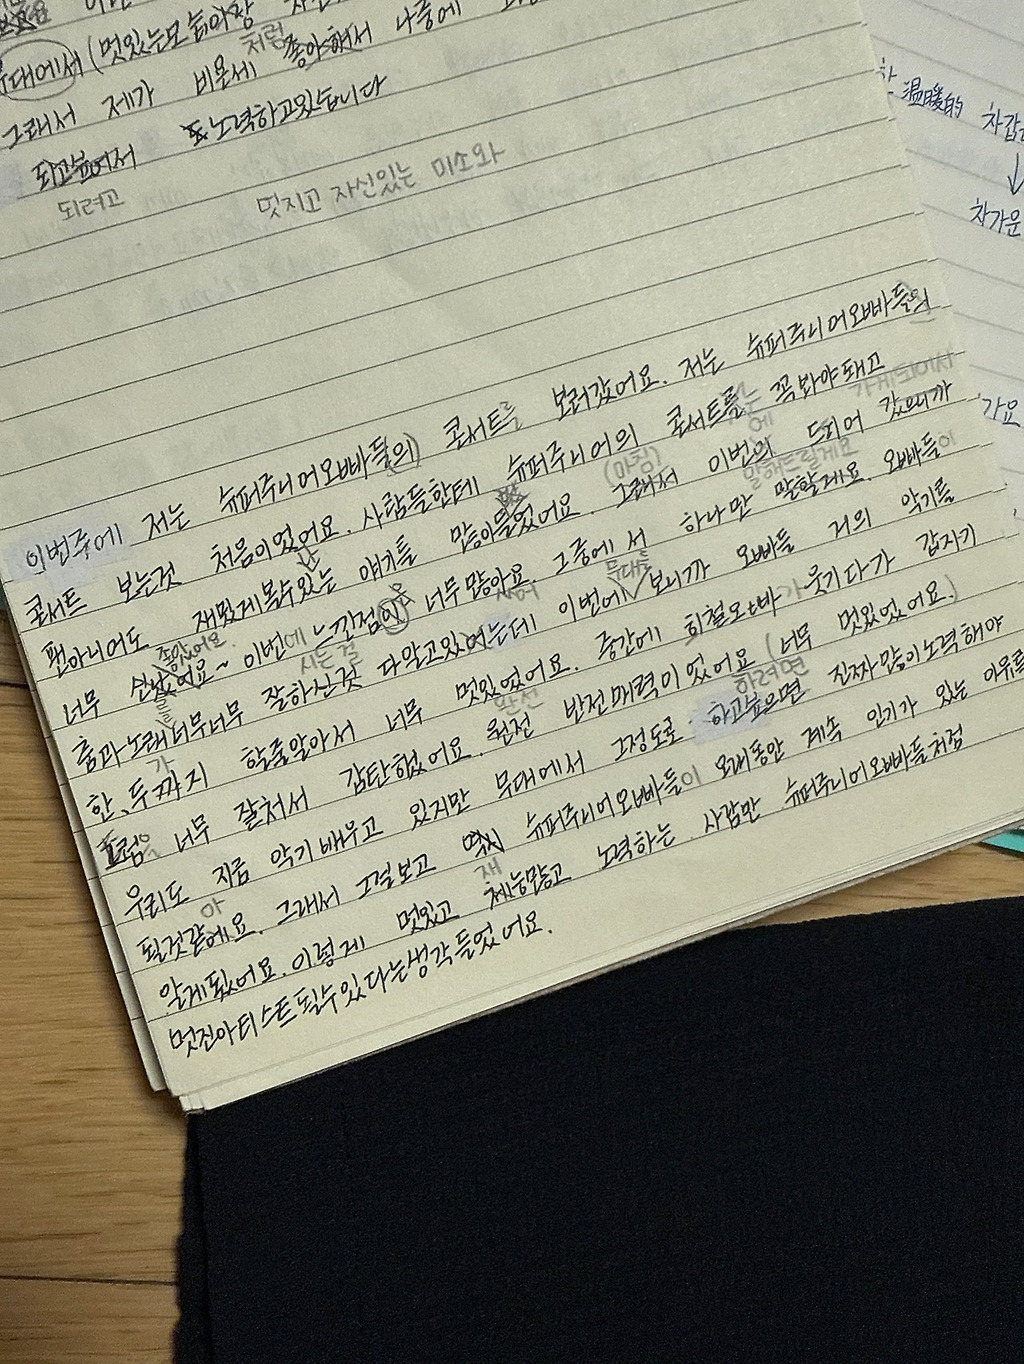 무대에서 (멋있는모습마장
처럼
그래서 제가 비온세 좋아해서 나중에
되고싶어서 노력하고있습니다
되려고 멋지고 자신있는 미소와
温暖的 차갑
↓
차가운
가요
이번주에 저는 슈퍼주니어오빠들의 콘서트를 보러갔어요. 저는 슈퍼주니어오빠들의
콘서트 보는것 처음이었어요. 사람들한테 슈퍼주니어의 콘서트를 꼭봐야돼고
가게되어서
팬아니어도 재밌게볼수있는 얘기를 많이들었어요. 그래서 이번의 드디어 갔으니까
(마침) 에
말해드릴게요
너무 신났어요~ 이번에 느낀점이 너무많아요. 그중에서 하나만 말할게요. 오빠들이
좋았어요
춤과노래너무너무 잘하신것 다알고있었는데 이번에 보니까 오빠들 거의 악기를
시는걸 무대를
한, 두가지 할줄알아서 너무 멋있었어요. 중간에 희철오빠가 웃기다가 갑자기
드럼을 너무 잘쳐서 감탄했어요. 완전 반전매력이있었어요 (너무 멋있었어요.)
완전 하려면
우리도 지금 악기배우고 있지만 무대에서 그정도로 하고싶으면 진짜많이노력해야
될것같애요. 그래서 그걸보고 역시 슈퍼주니어오빠들이 오래동안 계속 인기가 있는 이유를
아
알게됐어요. 이렇게 멋있고 체능많고 노력하는 사람만 슈퍼주니어오빠들처점
재
멋진아티스트될수있다는생각들었어요.